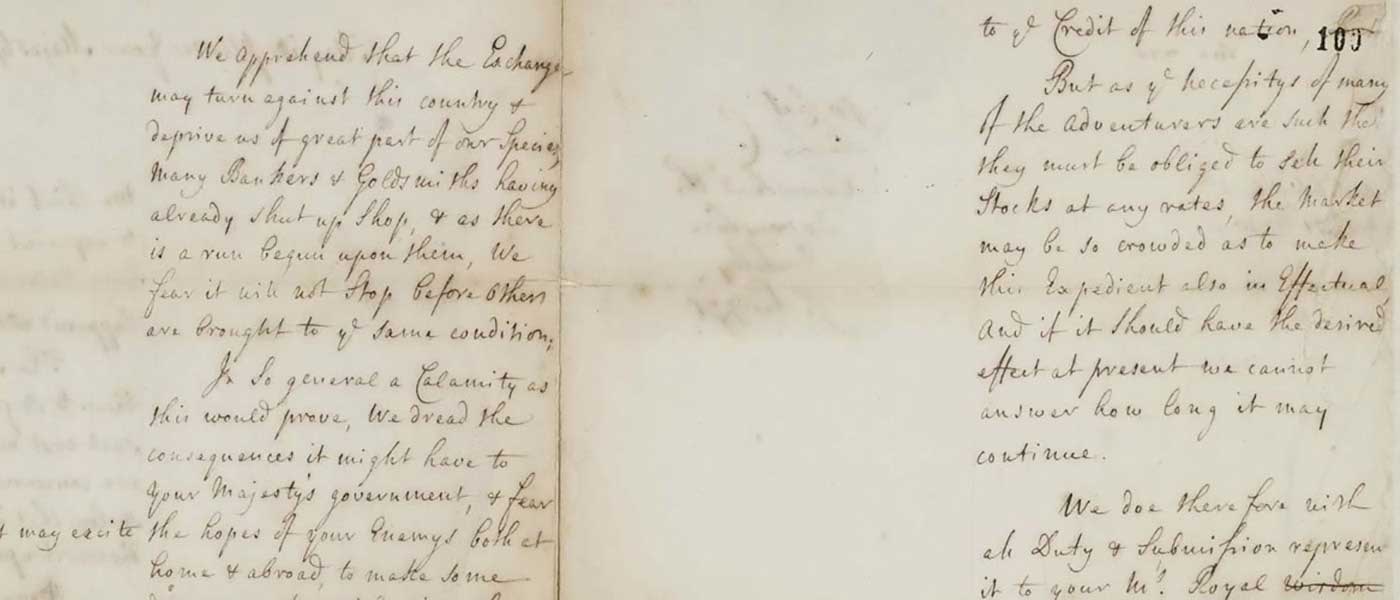 We apprehend that the Exchange
may turn against this country &
deprive us of great part of our Species,
Many Bankers & Goldsmiths having
already shut up Shop, & as there
is a run begun upon them, We
fear it will not Stop before others
are brought to yᵉ same condition;
In So general a Calamity as
this would prove, We dread the
consequences it might have to
your Majesty's government, & fear
t may excite
the hopes of your Enemys both at
home & abroad, to make some
to yᵉ Credit of this nation,
100
But as yᵉ necessitys of many
of the Adventurers are such that
they must be obliged to sell their
Stocks at any rates, the Market
may be so crowded as to make
this Expedient also in Effectual,
And if it should have the desired
effect at present we cannot
answer how long it may
continue.
We doe therefore with
all Duty & Submission represen
it to your Mᵗʸ. Royal wisdom